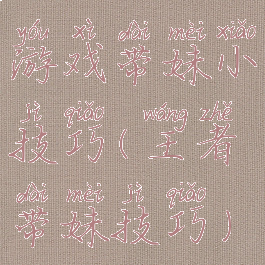 yóu xì dài mèi xiǎo
游戏带妹小
jì qiǎo wáng zhě
技巧(王者
dài mèi jì qiǎo
带妹技巧)